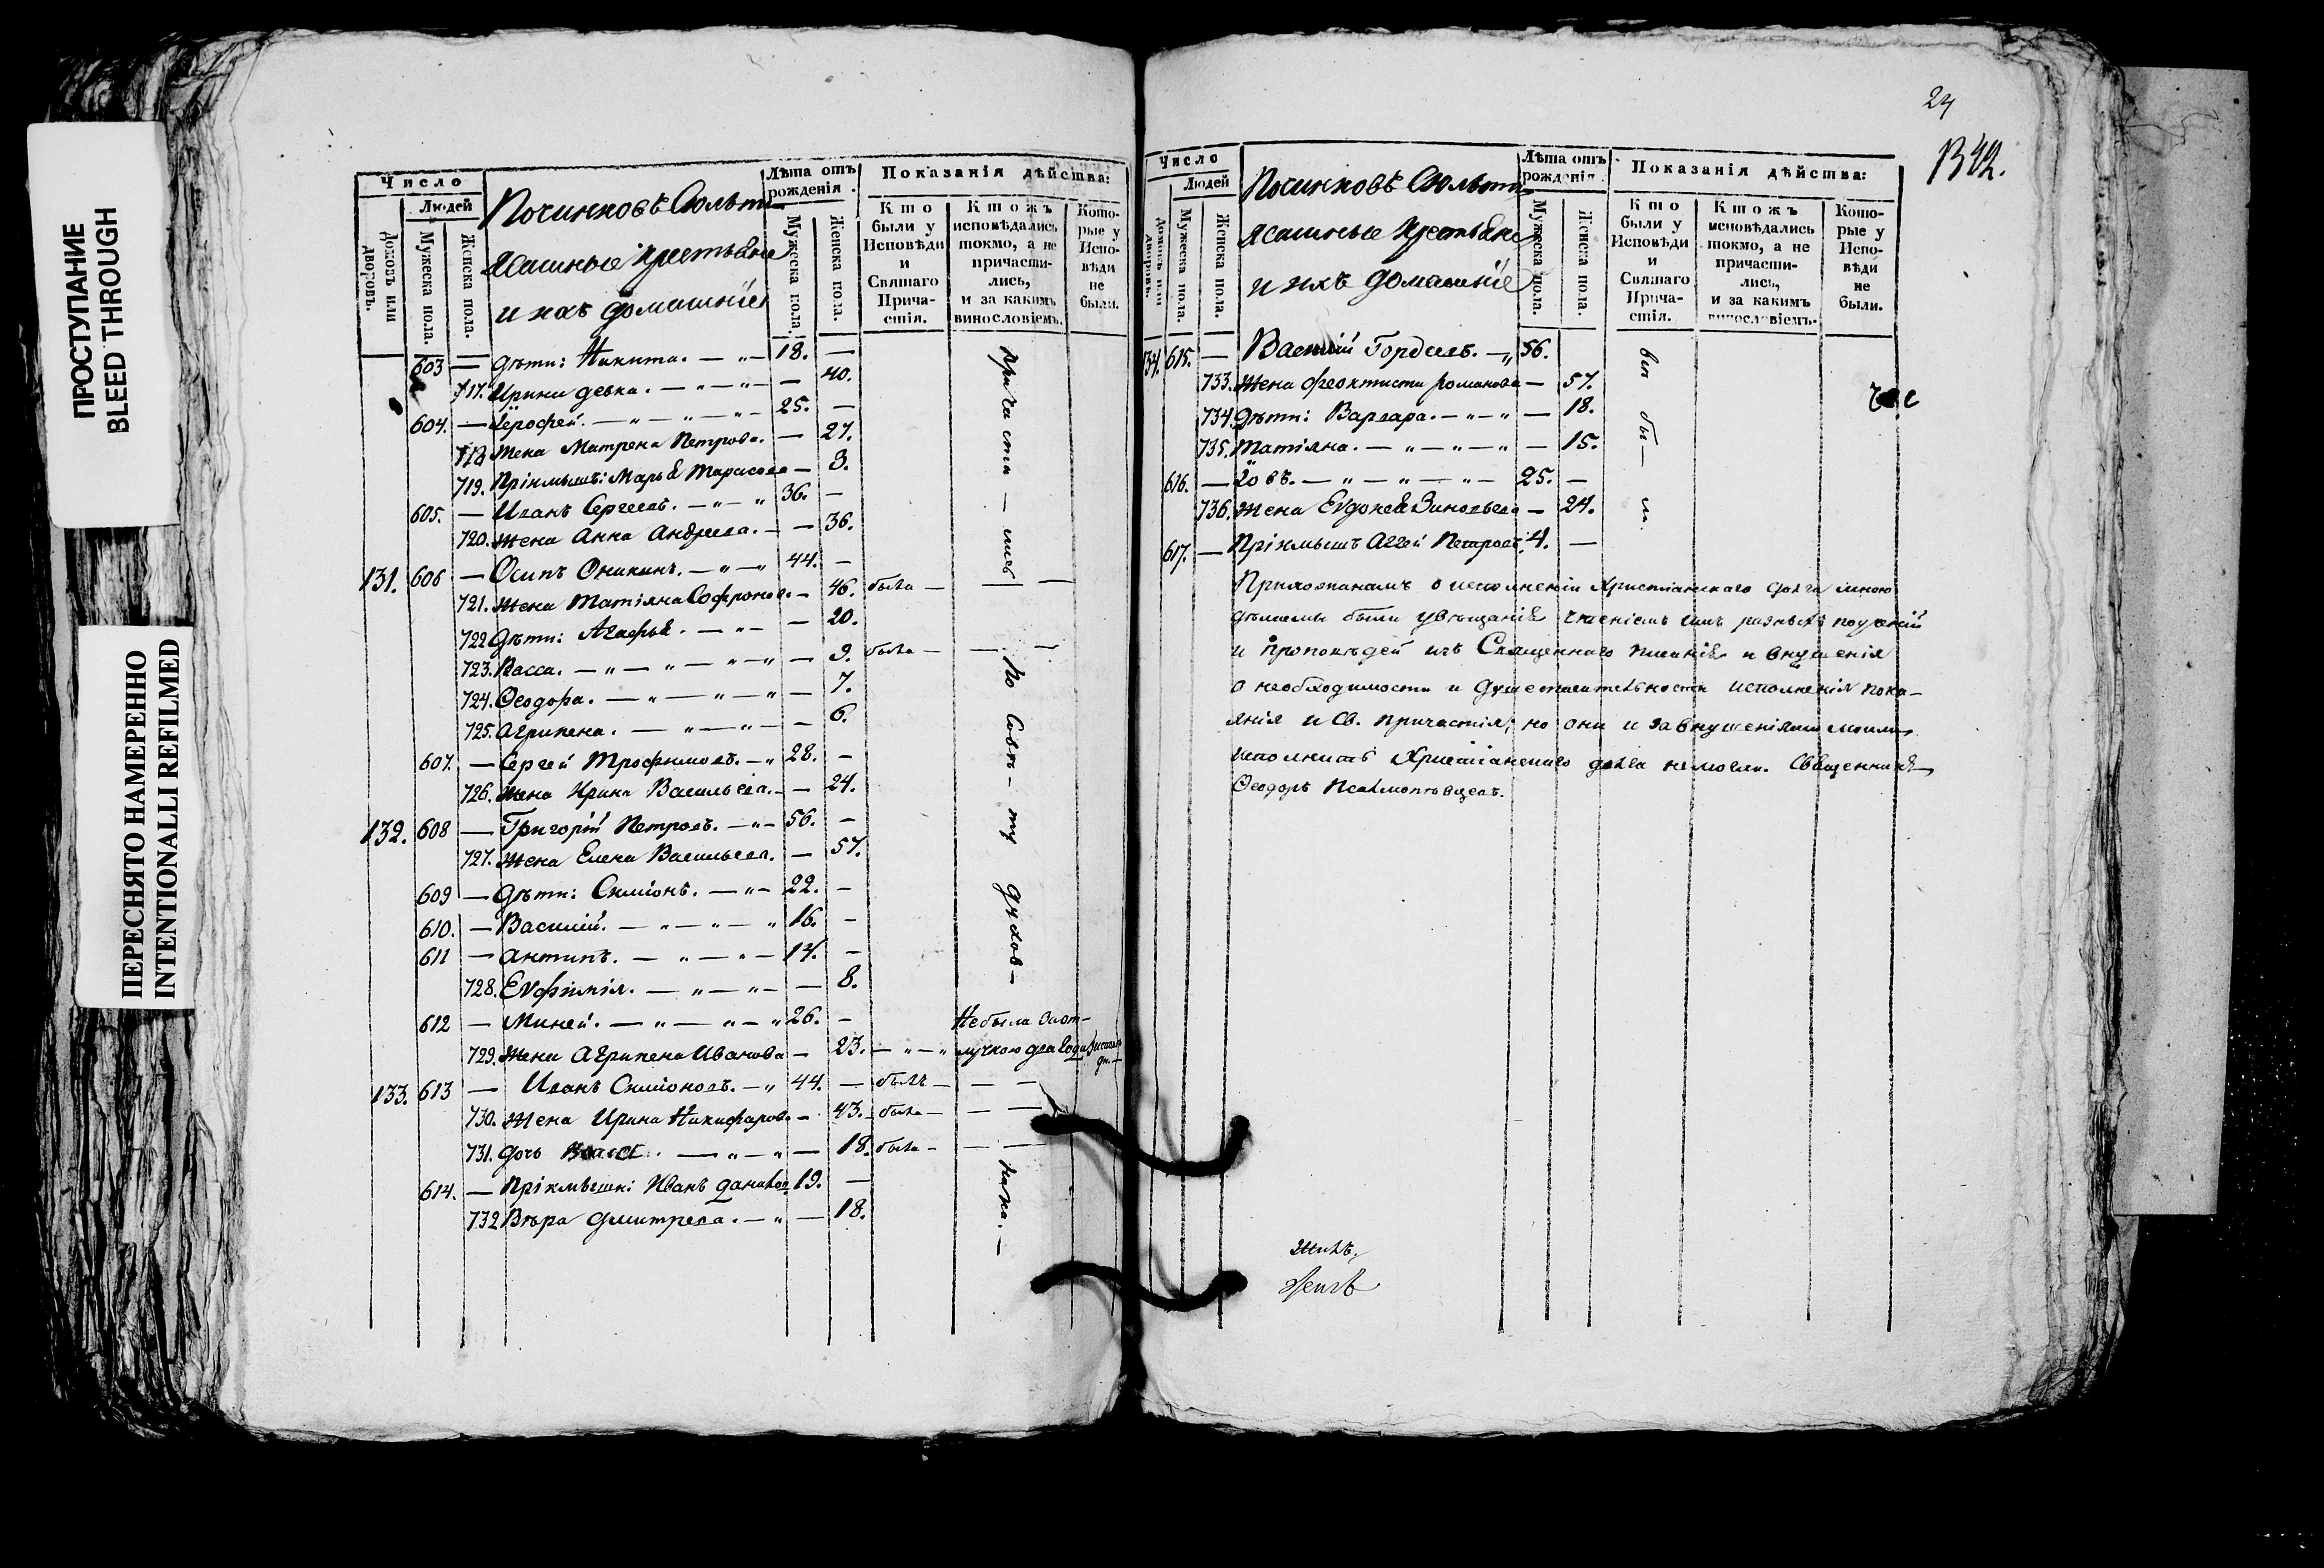 ПРОСТУПАНИЕ
BLEED THROUGH
ПЕРЕСНЯТО НАМЕРЕННО
INTENTIONALLI REFILMED
Число
Людей
Домовъ или дворовъ.
Мужеска пола.
Женска пола.
Починковъ Сюльти
ясашные крестьяне
и ихъ домашніе
Лѣта отъ рожденія.
Мужеска пола.
Женска пола.
Показанія дѣйства:
Кто были у Исповѣди и Святаго Причастія.
Ктожъ исповѣдались токмо, а не причастились, и за какимъ винословіемъ.
Которые у Исповѣди не были.
603 — дѣти: Никита. — „ — 18. —
717. Ирина девка. — „ — „ — — 40.
604. — Іерофей. — „ — „ — „ — 25. —
718 жена Матрена Петрова. — 27.
719. Пріимышъ: Марья Тарасова — 3.
605. — Иванъ Сергеевъ. — „ — „ 36. —
720. жена Анна Андреева. — — 36.
131. 606 — Осипъ Оникинъ. — „ — „ 44. —
721. жена Татіяна Софронова — 46. была —
722 дѣти: Агафья. — „ — — 20.
723. Васса. — „ — „ — „ — „ — 9. была —
724. Ѳеодора. — „ — „ — „ — 7.
725. Агрипена. — „ — „ — — 6.
607. — Сергей Трофимовъ. — „ 28. —
726. жена Ирина Васильева. — — 24.
132. 608 — Григорій Петровъ. — „ — 56. —
727. жена Елена Васильева. — 57.
609 — дѣти: Симіонъ. — „ — 22. —
610. — Василій. — „ — „ — „ 16. —
611 — Антипъ. — „ — „ — 14. —
728. Евфимія. — „ — „ — — 8.
612 — Миней. — „ — „ — „ 26. —
729. жена Агрипена Иванова — 23. — „ — „
Не была за от-
лучкою два года
133. 613 — Иванъ Симіоновъ. — „ 44. — былъ — — —
730. жена Ирина Никифорова — 43. была — — —
731. дочь Васса. — „ — „ — 18. была — — —
614. — Пріимыши: Иванъ Данилов 19. —
732 Вѣра Дмитрева. — „ — 18.
причасти — лись
по совѣ — ту духов —
ника. —
24
1342.
Число
Людей
Домовъ или дворовъ.
Мужеска пола.
Женска пола.
Починковъ Сюльти
ясашные крестьяне
и ихъ домашніе
Лѣта отъ рожденія.
Мужеска пола.
Женска пола.
Показанія дѣйства:
Кто были у Исповѣди и Святаго Причастія.
Ктожъ исповѣдались токмо, а не причастились, и за какимъ винословіемъ.
Которые у Исповѣди не были.
134. 615. — Василій Гордеевъ. — „ 56.
733. жена Феоктиста Романова — 57.
734 дѣти: Варвара. — „ — „ — 18.
735. Татіяна. — „ — „ — „ — 15.
616. — Іовъ. — „ — „ — „ — 25. —
736. жена Евдокея Зиновьева — 24.
617. — Пріимышъ Аггей Петровъ. 4. —
всѣ бы — ли.
Прихожанамъ о исполненіи Христіанскаго долга мною
дѣлаемы были увѣщанія чтеніемъ имъ разныхъ поученій
и проповѣдей изъ Священнаго писанія и внушенія
о необходимости и душеспасительности исполненія пока-
янія и Св. причастія; но они и за внушеніями моими
исполнить Христіанскаго долга немогли. Священникъ
Ѳеодоръ